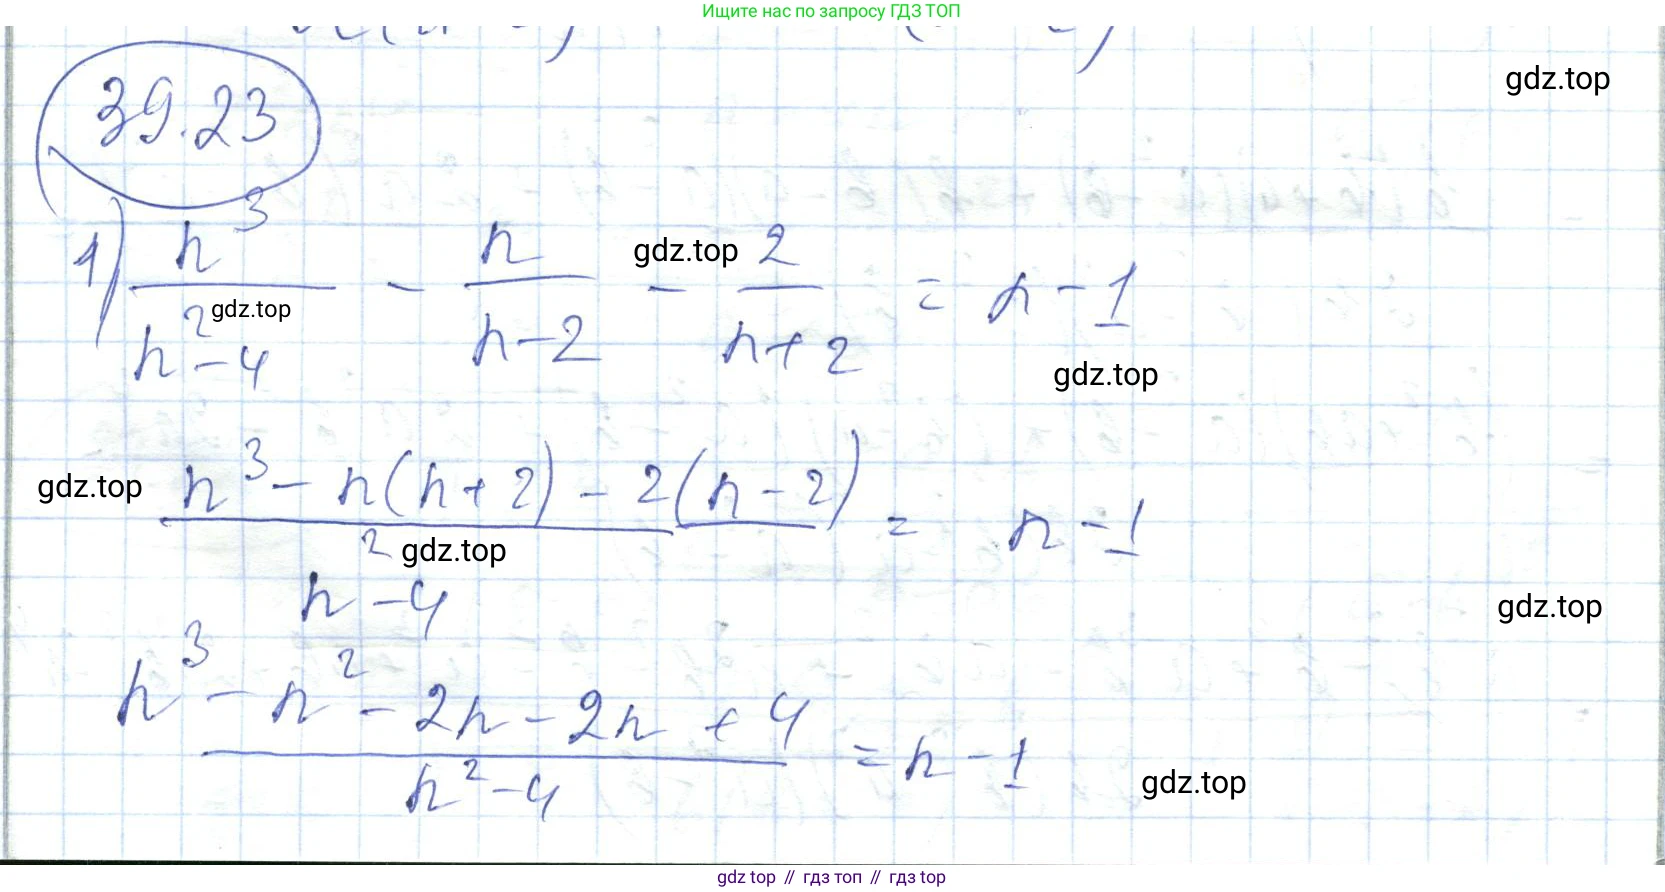 Ищите нас по запросу ГДЗ ТОП
gdz.top
39.23
1) n³/(n²-4) - n/(n-2) - 2/(n+2) = n-1
gdz.top
gdz.top
gdz.top
gdz.top
(n³ - n(n+2) - 2(n-2))/(n²-4) = n-1
gdz.top
gdz.top
(n³ - n² - 2n - 2n + 4)/(n²-4) = n-1
gdz.top
gdz top // гдз топ // gdz top